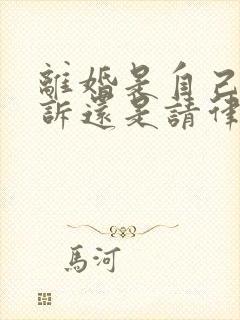 離婚是自己
訴還是請律
馬河